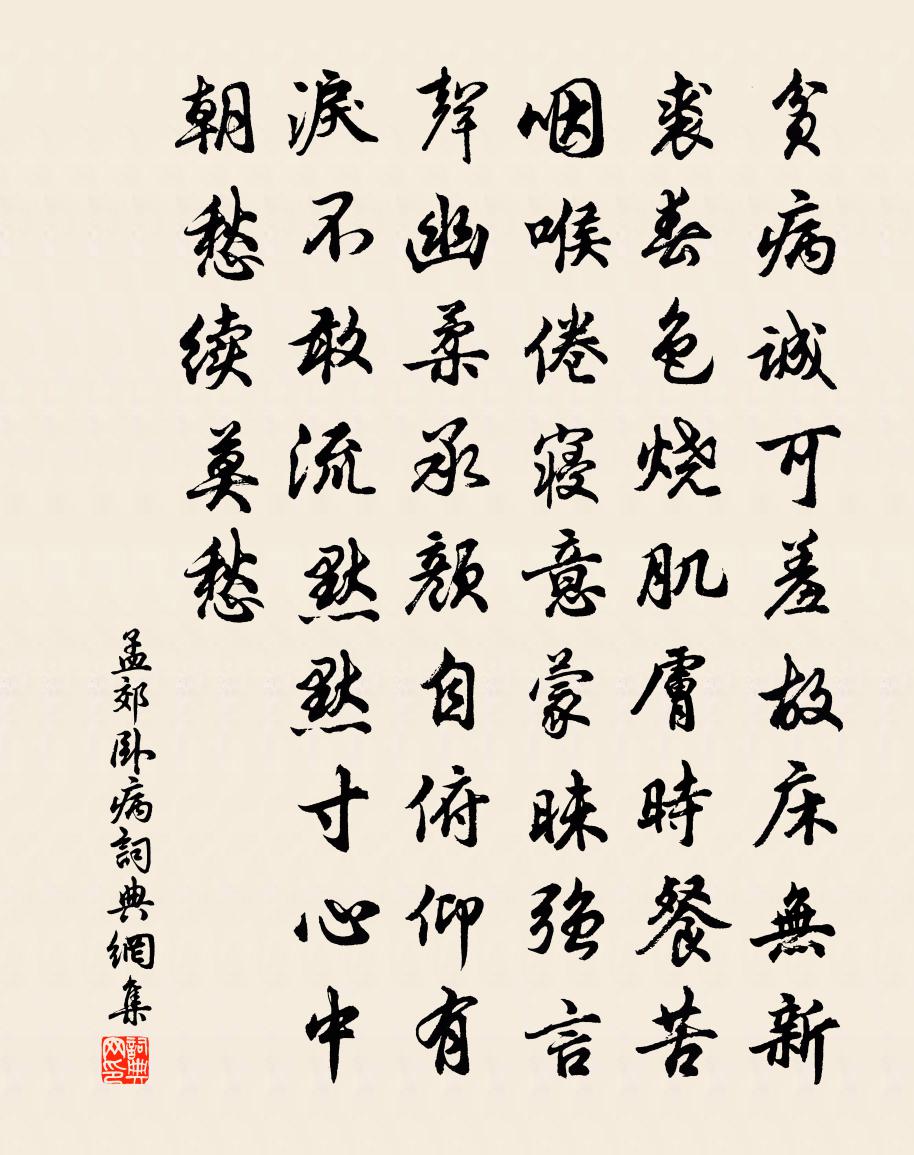 貧病誠可羞故床無新
裘春色烧肌膚時餐苦
咽喉倦寝意蒙昧強言
聲幽柔承顔自俯仰有
淚不敢流默默寸心中
朝愁续莫愁
孟郊卧病詞典網集
詞典网印